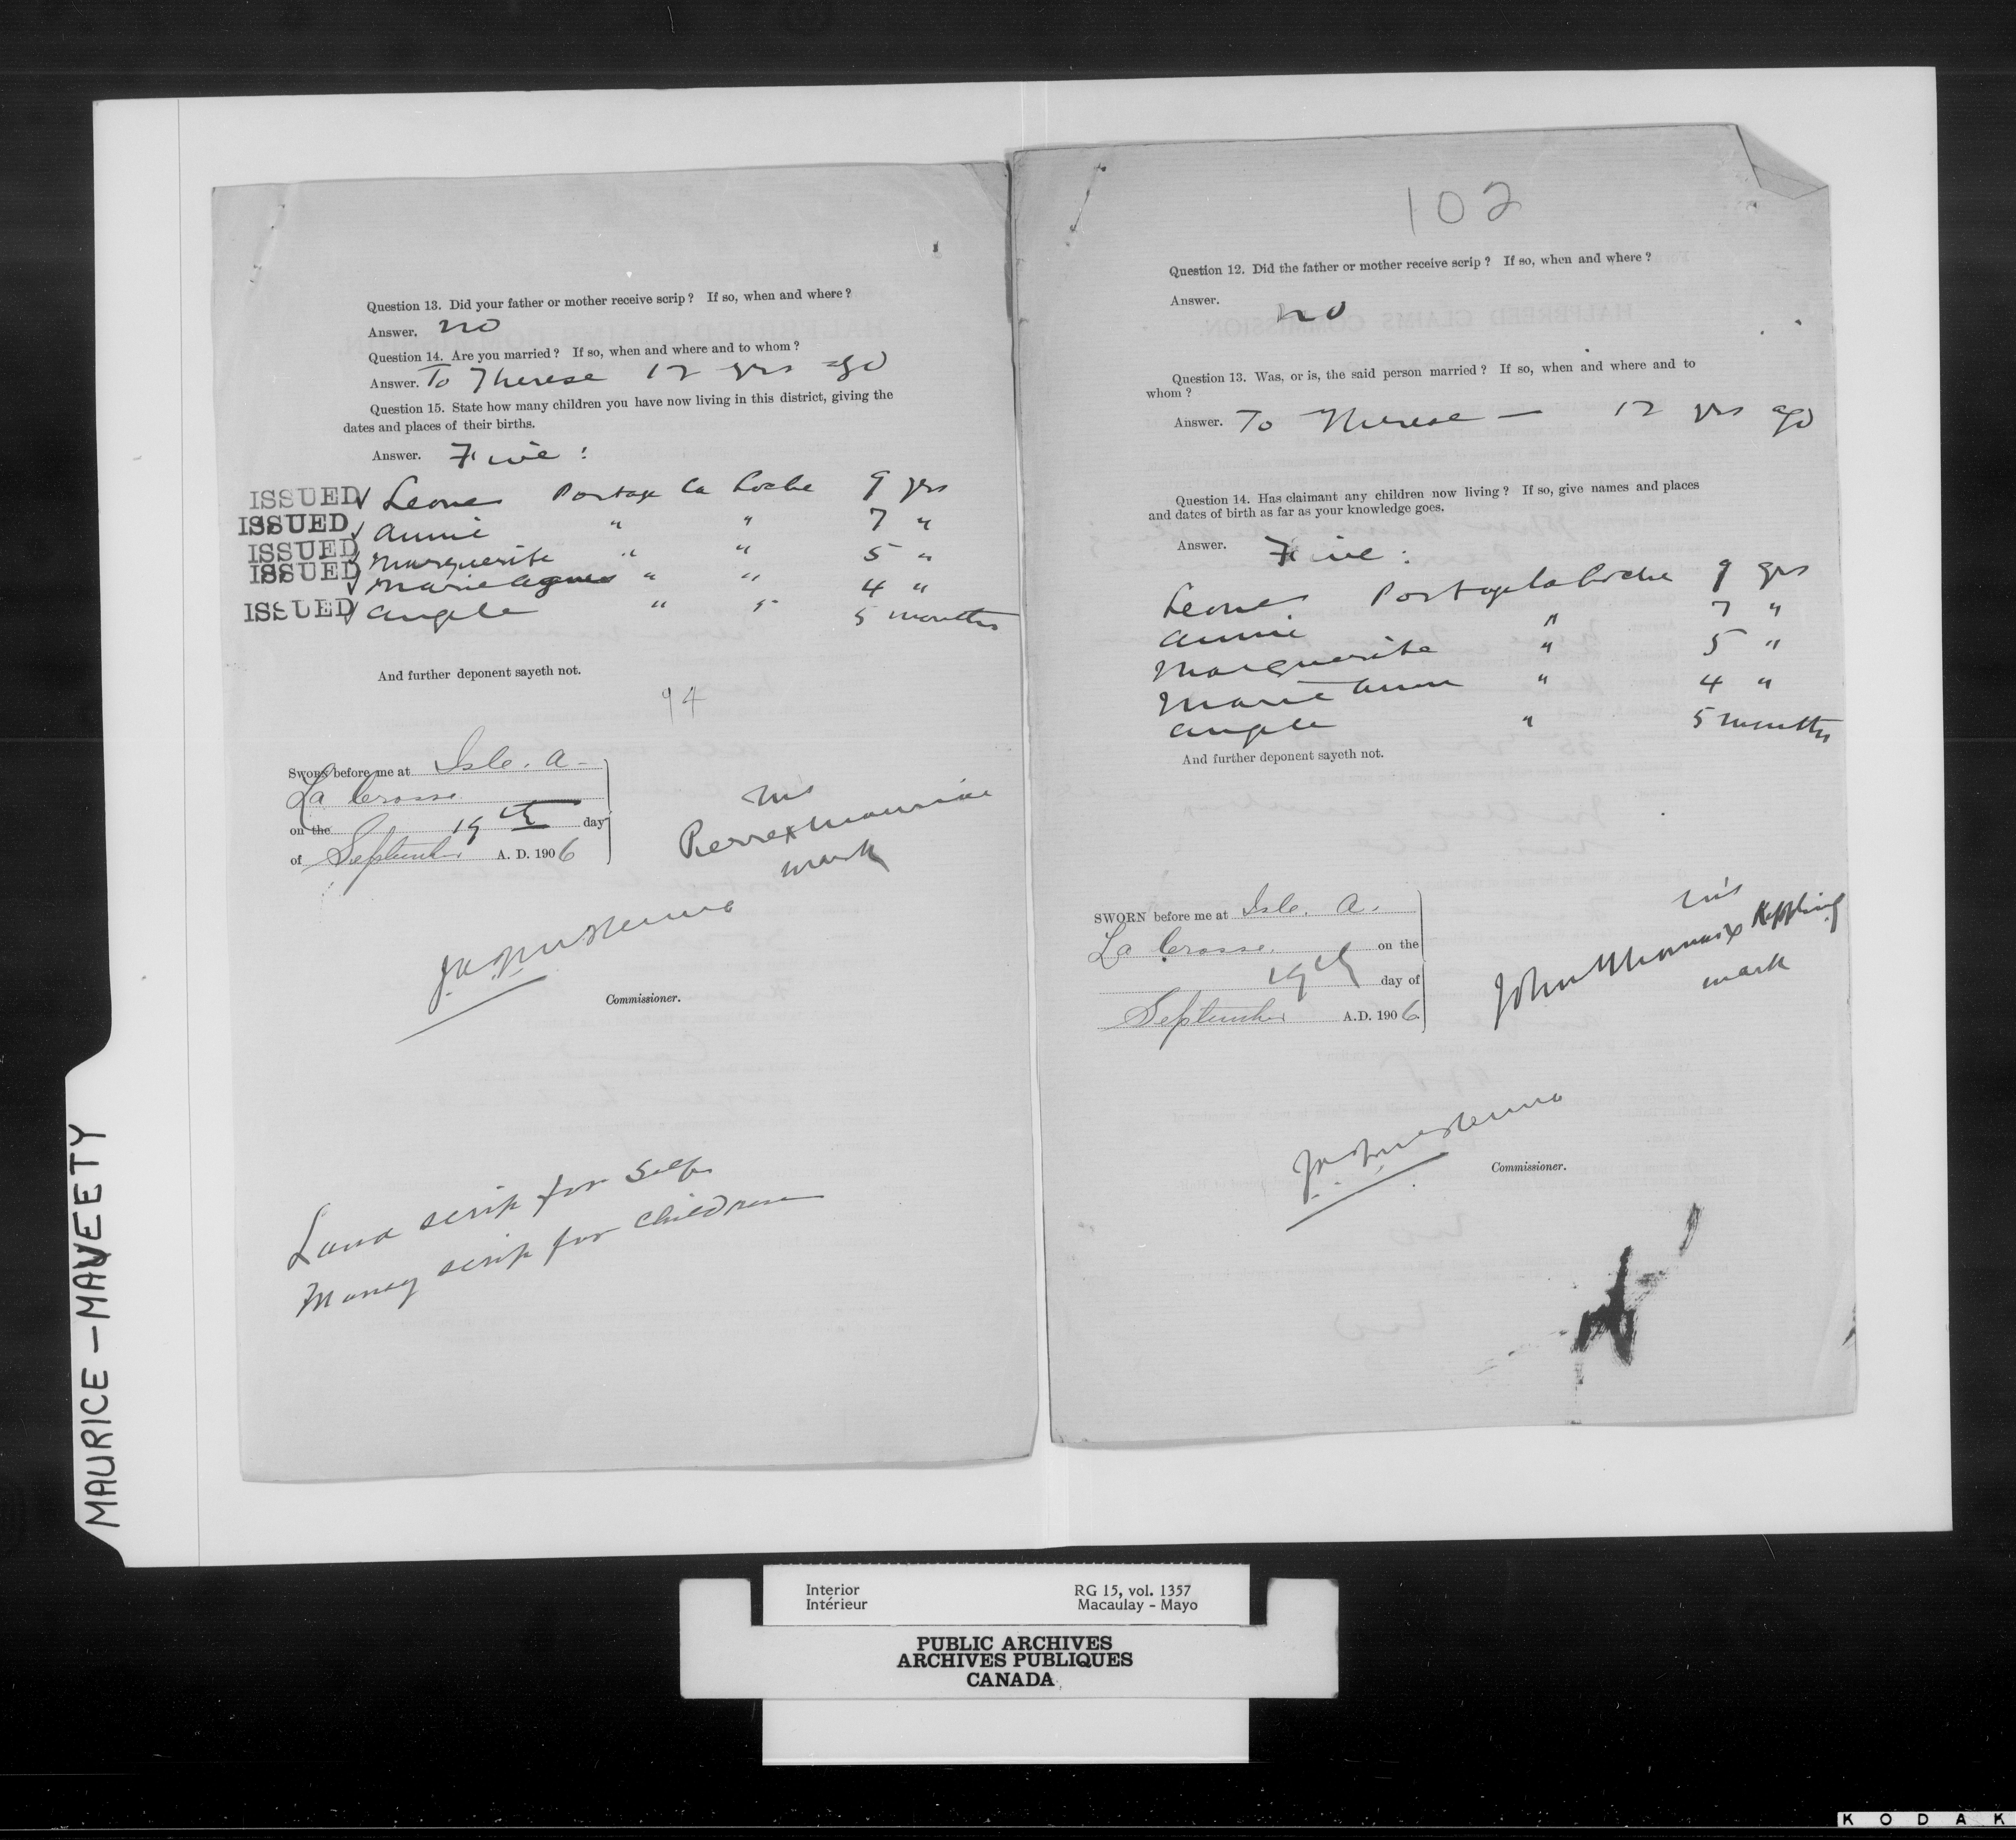 Question 13. Did your father or mother receive scrip? If so, when and where?
Answer. no
Question 14. Are you married? If so, when and where and to whom?
Answer. To Therese 12 yrs ago
Question 15. State how many children you have now living in this district, giving the
dates and places of their births.
Answer. Five:
ISSUED ✓ Leone Portage la Loche 9 yrs
ISSUED ✓ Annie " " 7 "
ISSUED ✓ Marguerite " " 5 "
ISSUED ✓ Marie Agnes " " 4 "
ISSUED ✓ Angele " " 5 months
And further deponent sayeth not.
94
SWORN before me at Isle. A-
La Crosse
on the 19th day
of September A. D. 1906
his
Pierre x Maurice
mark
Commissioner.
Land scrip for self
Money scrip for children
102
Question 12. Did the father or mother receive scrip? If so, when and where?
Answer.
no
Question 13. Was, or is, the said person married? If so, when and where and to
whom?
Answer. To Therese — 12 yrs ago
Question 14. Has claimant any children now living? If so, give names and places
and dates of birth as far as your knowledge goes.
Answer. Five:
Leone Portage la Loche 9 yrs
Annie " 7 "
Marguerite " 5 "
Marie " 4 "
Angele " 5 months
And further deponent sayeth not.
SWORN before me at Isle. A.
La Crosse. on the
19th day of
September A.D. 1906
his
John Thomas x Kippling
mark
Commissioner.
MAURICE – MAVEETY
Interior RG 15, vol. 1357
Intérieur Macaulay - Mayo
PUBLIC ARCHIVES
ARCHIVES PUBLIQUES
CANADA
KODAK